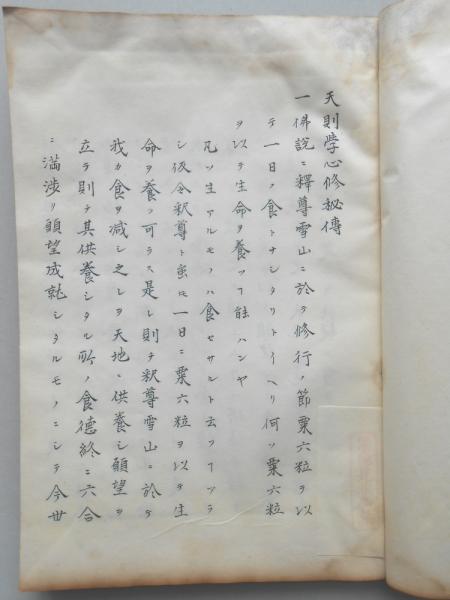 天則学心修秘傳
一佛説ニ釋尊雪山ニ於テ修行ノ節粟六粒ヲ以
テ一日ノ食トナシタリトイヘリ何ソ粟六粒
ヲ以テ生命ヲ養フヿ能ハンヤ
凡ソ生アルモノハ食セサルト云フヿナラ
シ仮令釈尊ト虽モ一日ニ粟六粒ヲ以テ生
命ヲ養フ可ラス是レ則チ釈尊雪山ニ於テ
我カ食ヲ減シ之レヲ天地ニ供養シ願望ヲ
立テ則チ其供養シタル所ノ食德終ニ六合
ニ満渉リ願望成就シタルモノニシテ今世